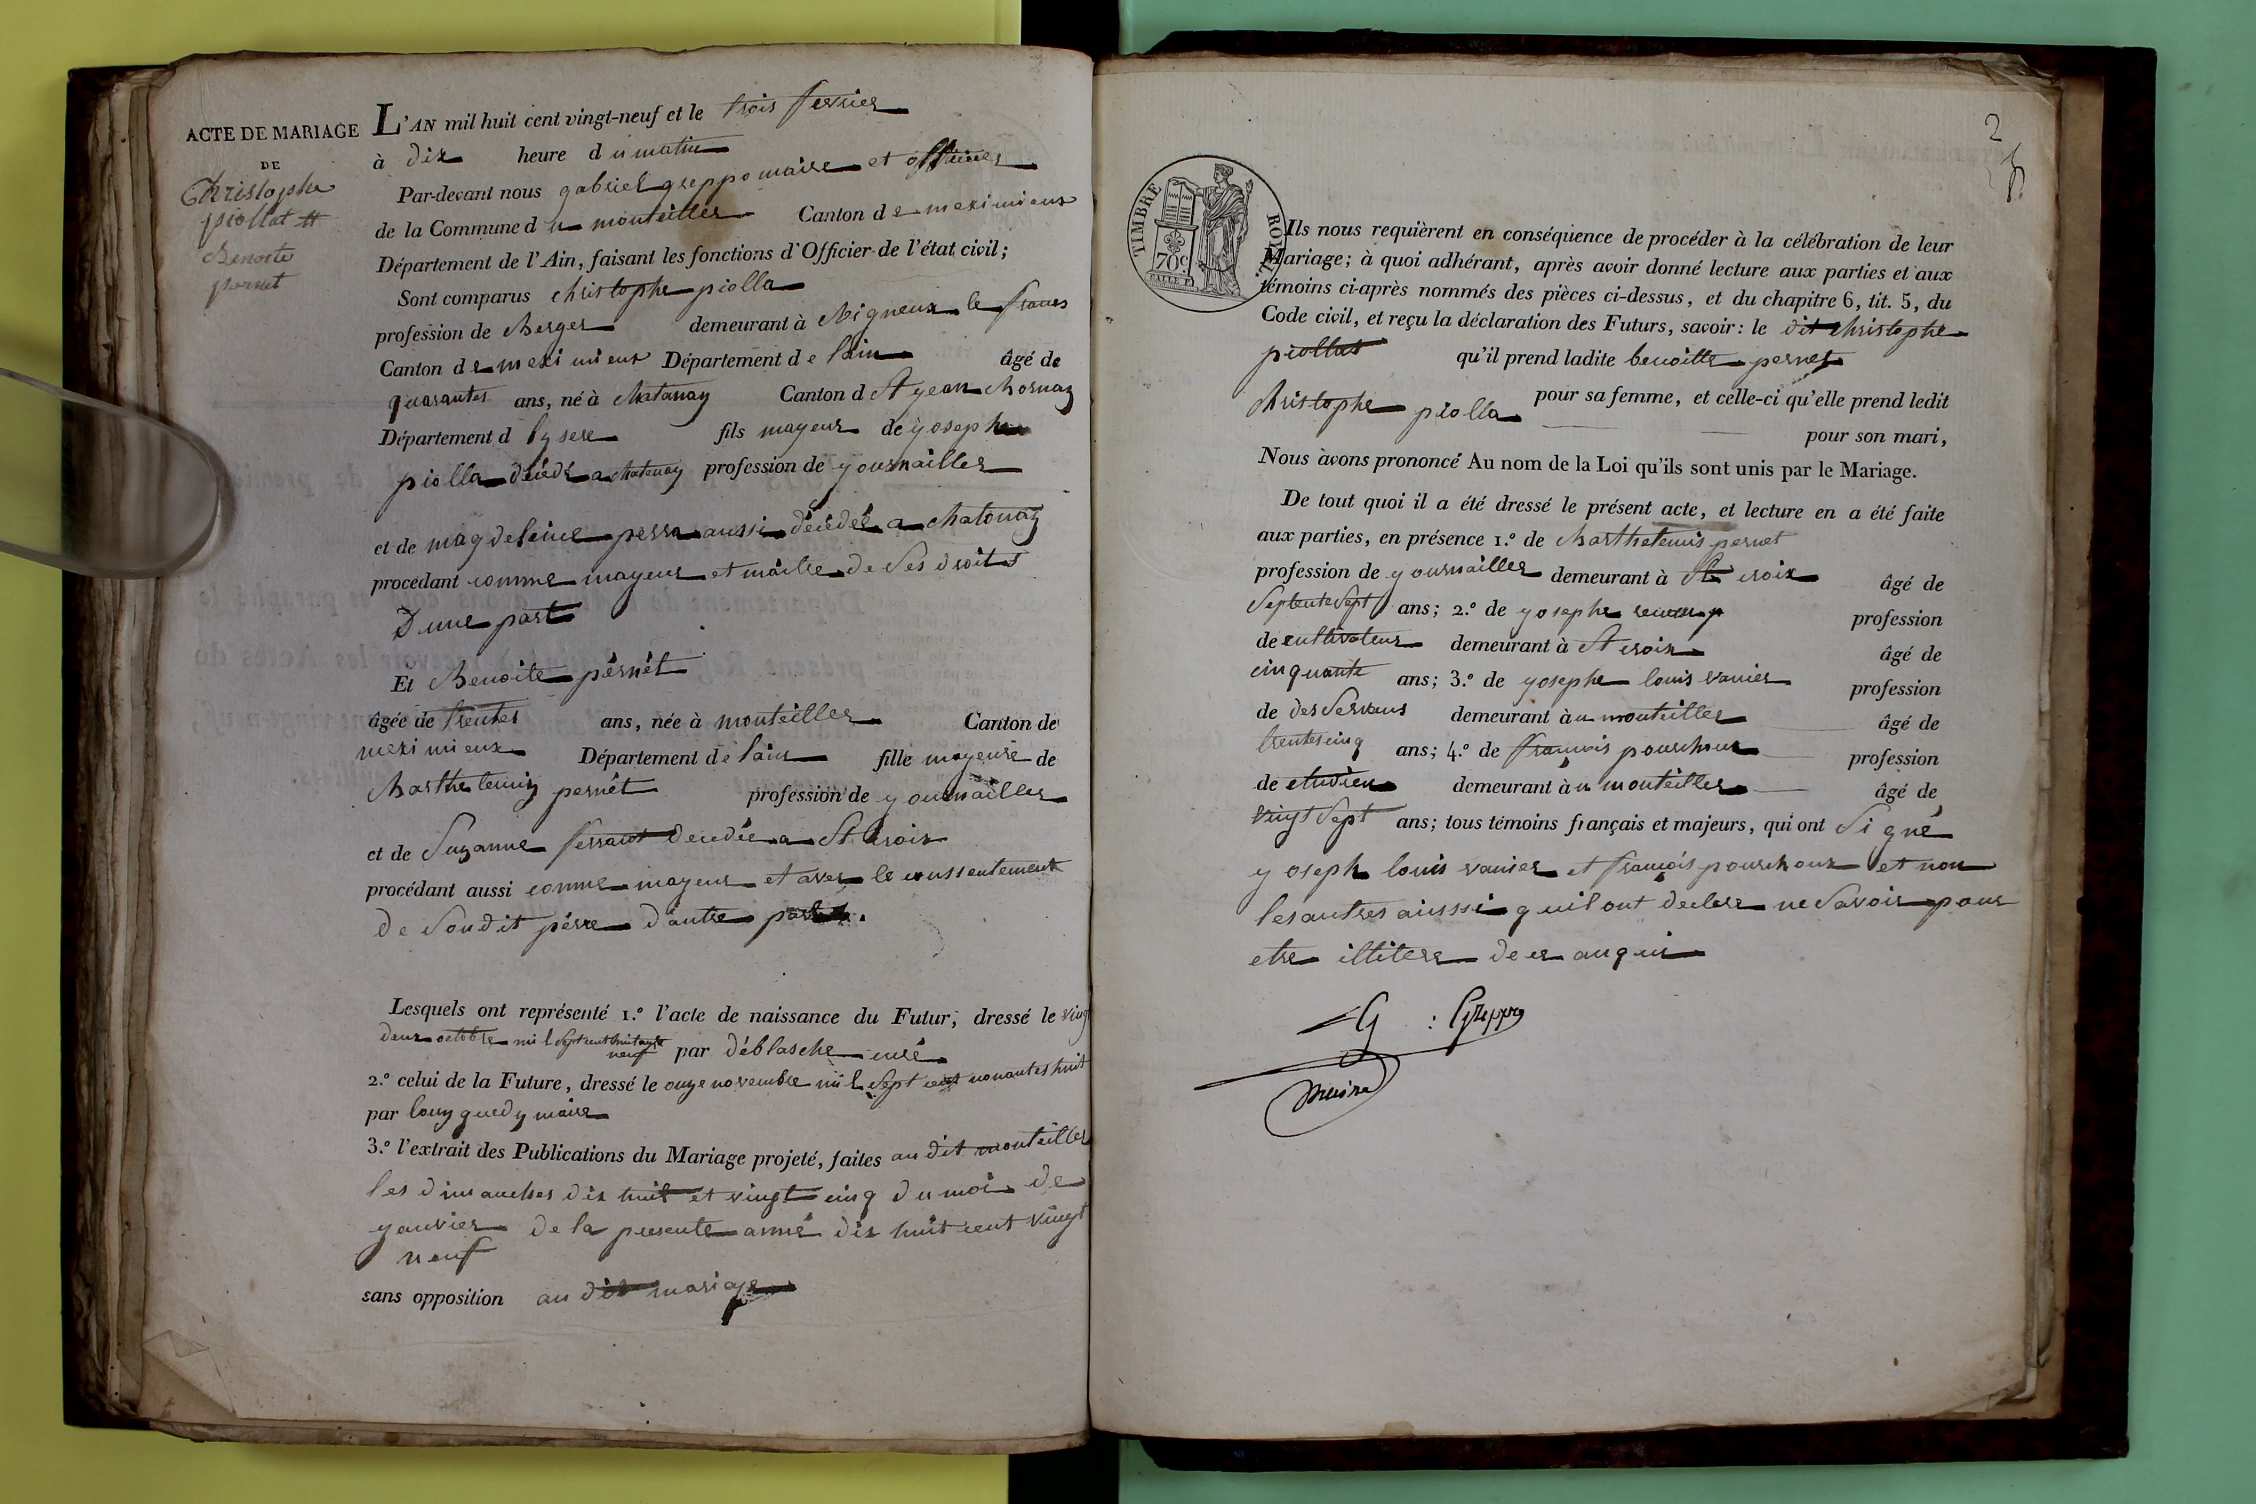 ACTE DE MARIAGE
DE
Christophe
piollat et
Benoite
pernet
L'AN mil huit cent vingt-neuf et le trois fevrier
à dix heure du matin
Par-devant nous gabriel greppo maire et officier
de la Commune du montellier Canton de meximieux
Département de l'Ain, faisant les fonctions d'Officier de l'état civil;
Sont comparus christophe piolla
profession de Berger demeurant à Birieux le francs
Canton de meximieux Département de lain âgé de
quarantes ans, né à chatonay Canton d St jean Bornay
Département d lysere fils mayeur de yosephe
piolla décédé a chatonay profession de yournailler
et de magdeleine perra aussi décédée a chatonay
procédant comme mayeur et maitre de Ses droits
D'une part
Et Benoite pernét
âgée de trentes ans, née à montellier Canton de
meximieux Département de lain fille mayeure de
Barthelemy pernét profession de yournailler
et de Suzanne decedée a St croix
procédant aussi comme mayeur et avec le consentement
De Son dit pére d'autre part.
Lesquels ont représenté 1.º l'acte de naissance du Futur, dressé le ving
deux octobre mil Sept cent huitante
neuf par déblache curé
2.º celui de la Future, dressé le onze novembre mil Sept cent nonantes huit
par louy maire
3.º l'extrait des Publications du Mariage projeté, faites au dit montellier
les dimanches dix huit et vingt cinq du moi de
yanvier de la presente anné dix huit cent vingt
neuf
sans opposition au dit mariage
2
TIMBRE ROYAL
70c
Ils nous requièrent en conséquence de procéder à la célébration de leur
Mariage; à quoi adhérant, après avoir donné lecture aux parties et aux
témoins ci-après nommés des pièces ci-dessus, et du chapitre 6, tit. 5, du
Code civil, et reçu la déclaration des Futurs, savoir: le dit christophe
piollat qu'il prend ladite benoitte pernet
pour sa femme, et celle-ci qu'elle prend ledit
christophe piolla pour son mari,
Nous avons prononcé Au nom de la Loi qu'ils sont unis par le Mariage.
De tout quoi il a été dressé le présent acte, et lecture en a été faite
aux parties, en présence 1.º de Barthelemis pernet
profession de yournailler demeurant à Ste croix âgé de
Septente Sept ans; 2.º de yosephe profession
de cultivateur demeurant à St croix âgé de
cinquante ans; 3.º de yosephe louis vanier profession
de desServans demeurant à u montellier âgé de
trentes cinq ans; 4.º de françois pourchoux profession
de etudien demeurant à u montellier âgé de
vingt Sept ans; tous témoins français et majeurs, qui ont Signé
yoseph louis vanier et françois pourchoux et non
les autres aiussi quil ont declare ne Savoir pour
etre illitere de ce anquis
G : Greppo
maire